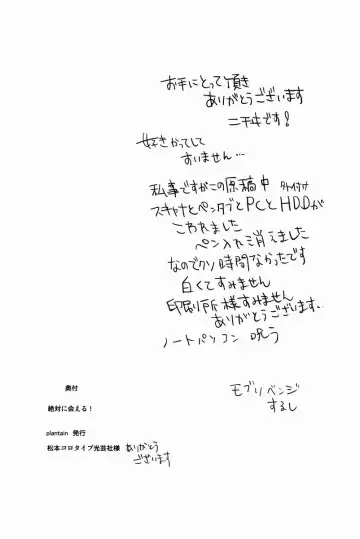 お手にとって頂き
ありがとうございます
二千ヰです!
好きかってして
すいません…
私事ですがこの原稿中 外付け
スキャナとペンタブとPCとHDDが
こわれました
ペン入れ消えました
なのでクソ時間なかったです
白くてすみません
印刷所様すみません
ありがとうございます。
ノートパソコン 呪う
モブリベンジ
するし
奥付
絶対に会える!
plantain 発行
松本コロタイプ光芸社様 ありがとう
ございます